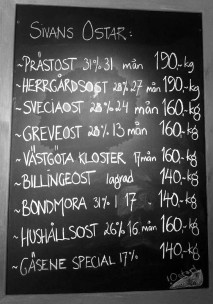 SIVANS OSTAR:
~PRÄSTOST 31% 31 mån 190.-kg
~HERRGÅRDSOST 28% 27 mån 190.-kg
~SVECIAOST 28% 24 mån 160.-kg
~GREVEOST 28% 13 mån 160.-kg
~VÄSTGÖTA KLOSTER 17 mån 160.-kg
~BILLINGEOST lagrad 140.-kg
~BONDMORA 31% 17 140.-kg
~HUSHÅLLSOST 26% 16 mån 160.-kg
~GÅSENE SPECIAL 17% 140.-kg